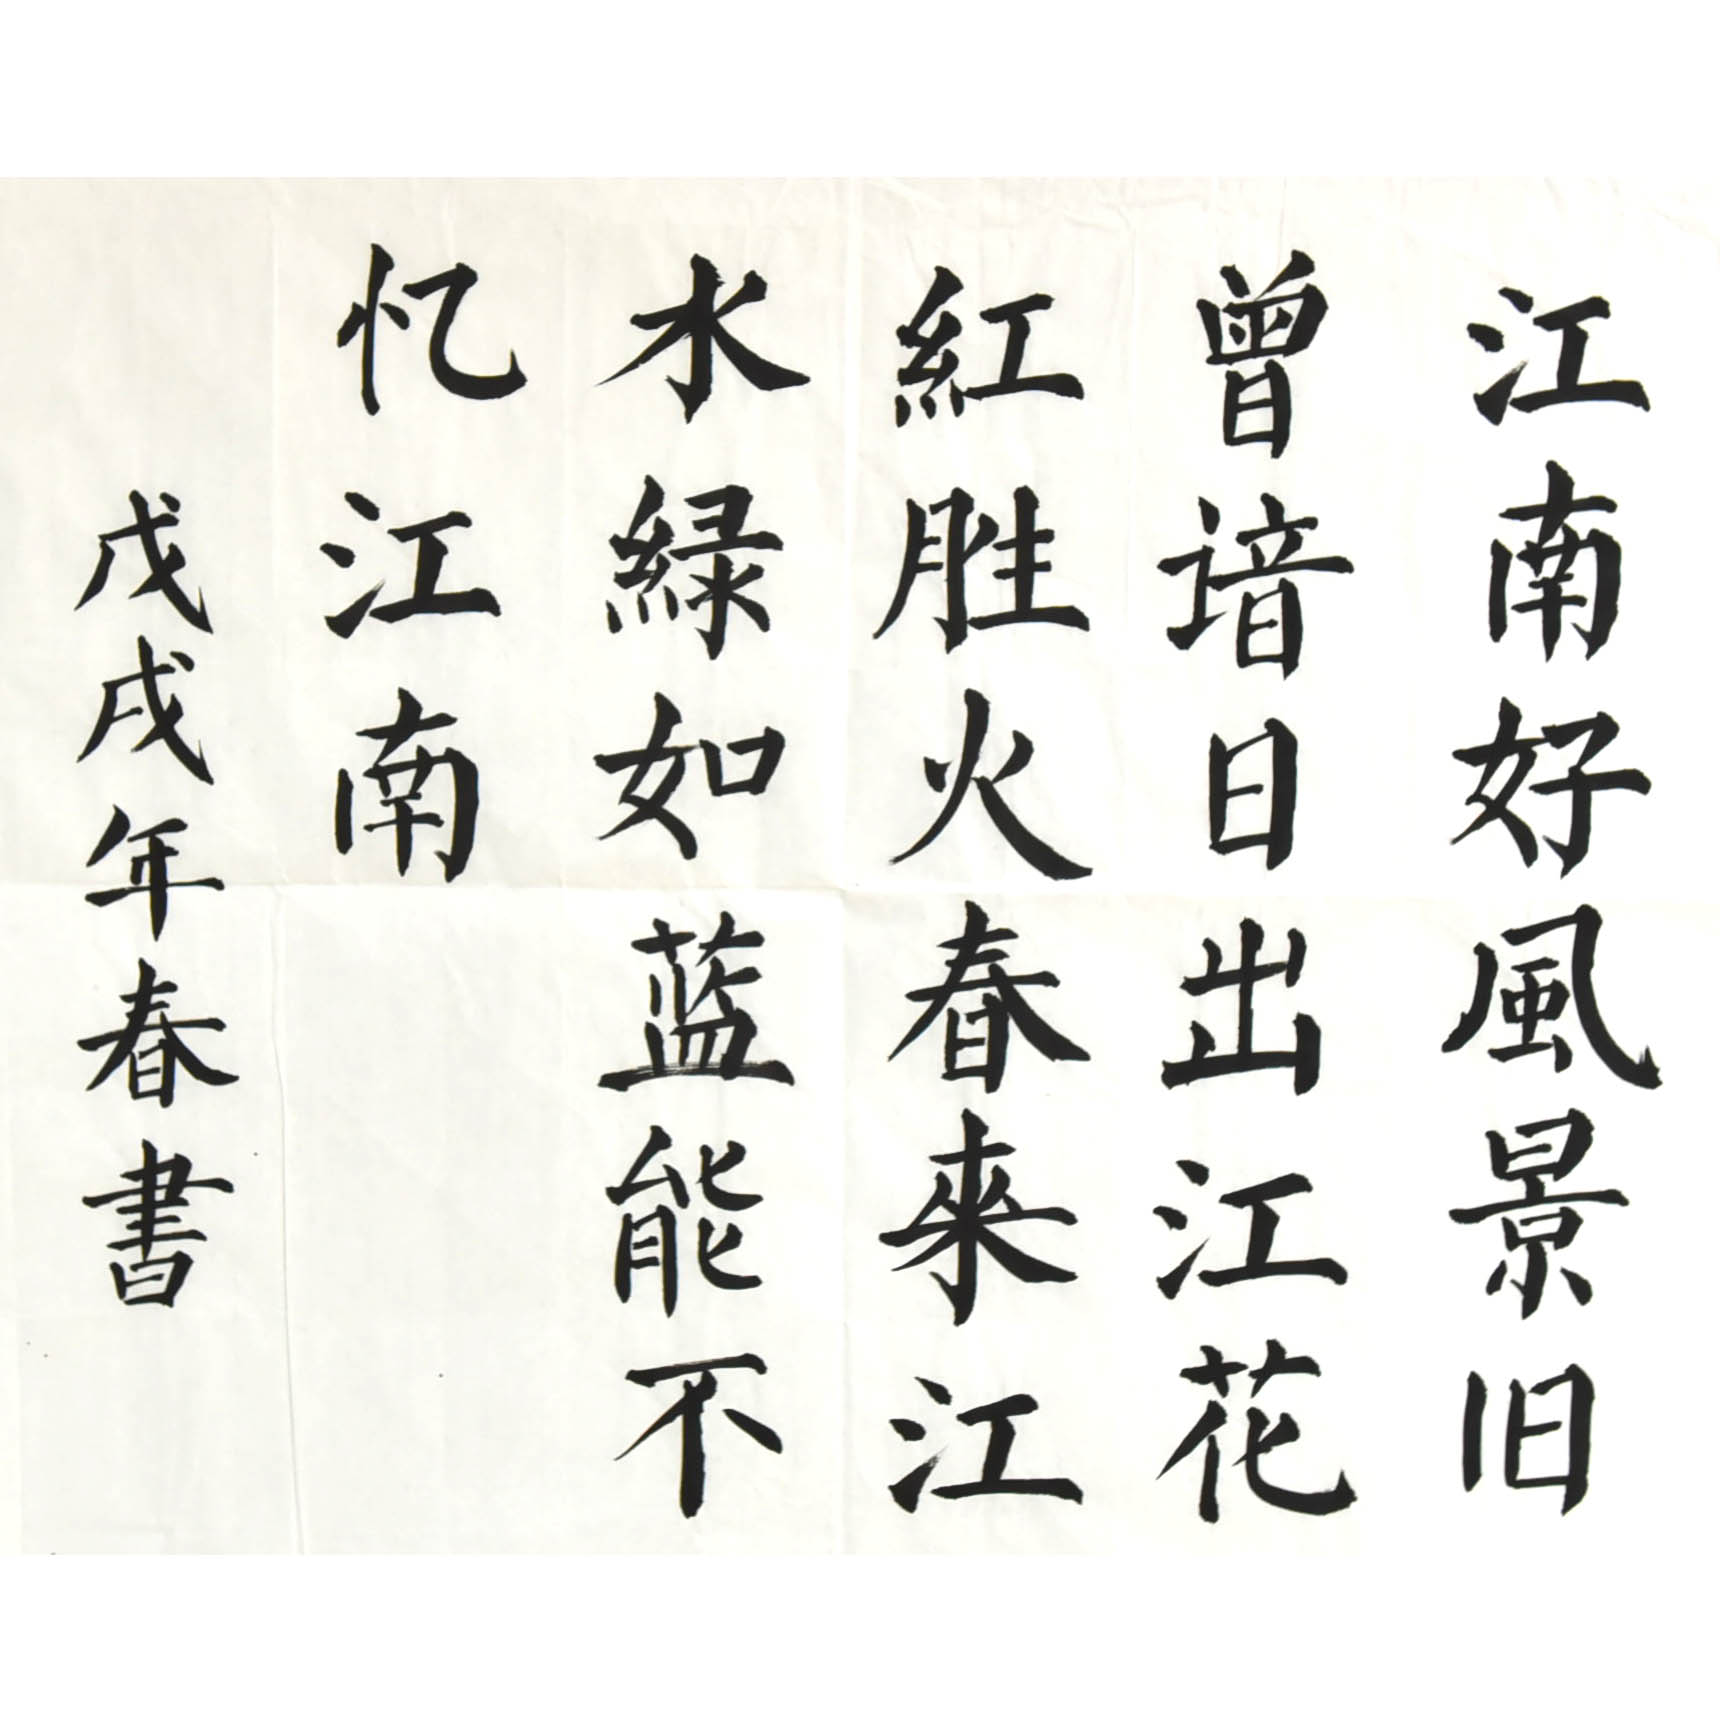 江南好風景旧
曾谙日出江花
紅胜火春來江
水緑如蓝能不
忆江南
戊戌年春書